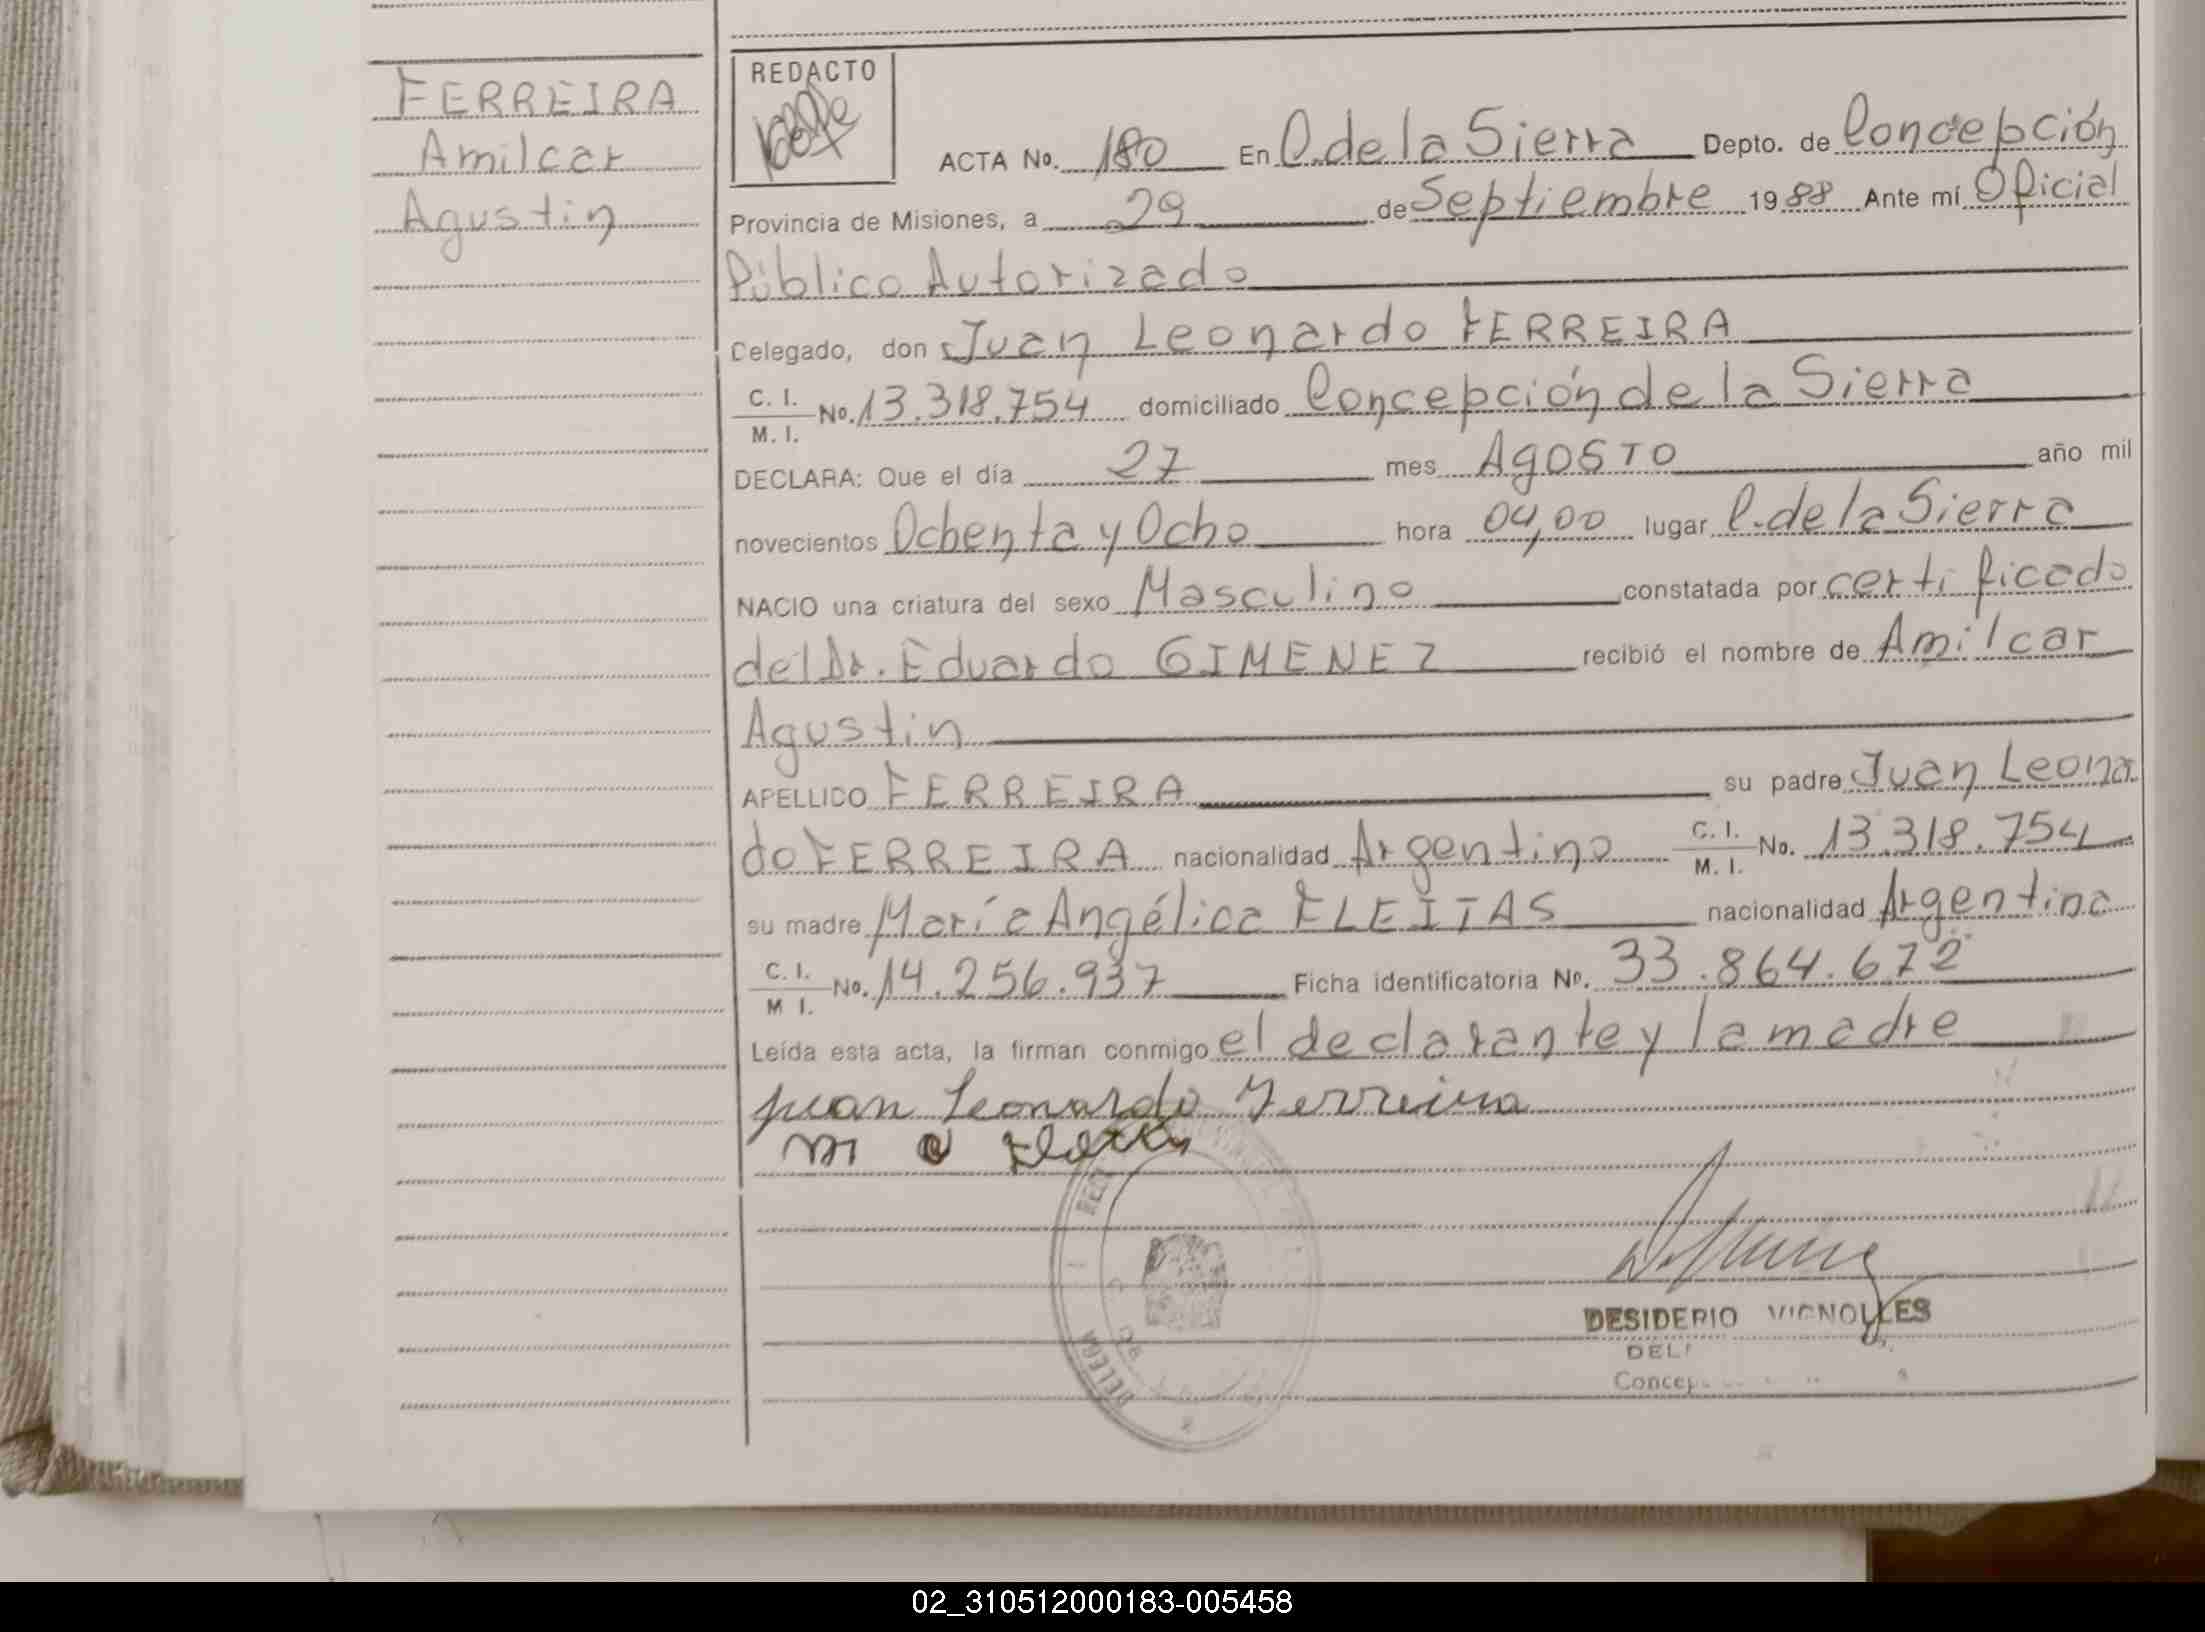 FERREIRA
Amilcar
Agustin
REDACTO
ACTA No. 180 En C. de la Sierra Depto. de Concepción
Provincia de Misiones, a 29 de Septiembre 1988 Ante mí Oficial
Público Autorizado
Delegado, don Juan Leonardo FERREIRA
C. I. M. I. No. 13.318.754 domiciliado Concepción de la Sierra
DECLARA: Que el día 27 mes AGOSTO año mil
novecientos Ochenta y Ocho hora 04,00 lugar C. de la Sierra
NACIO una criatura del sexo Masculino constatada por certificado
del Dr. Eduardo GIMENEZ recibió el nombre de Amilcar
Agustin
APELLIDO FERREIRA su padre Juan Leonar
do FERREIRA nacionalidad Argentino C. I. M. I. No. 13.318.754
su madre María Angélica FLEITAS nacionalidad Argentina
C. I. M I. No. 14.256.937 Ficha identificatoria No. 33.864.672
Leída esta acta, la firman conmigo el declarante y la madre
Juan Leonardo Ferreira
m a
DESIDERIO VIGNOLLES
02_310512000183-005458